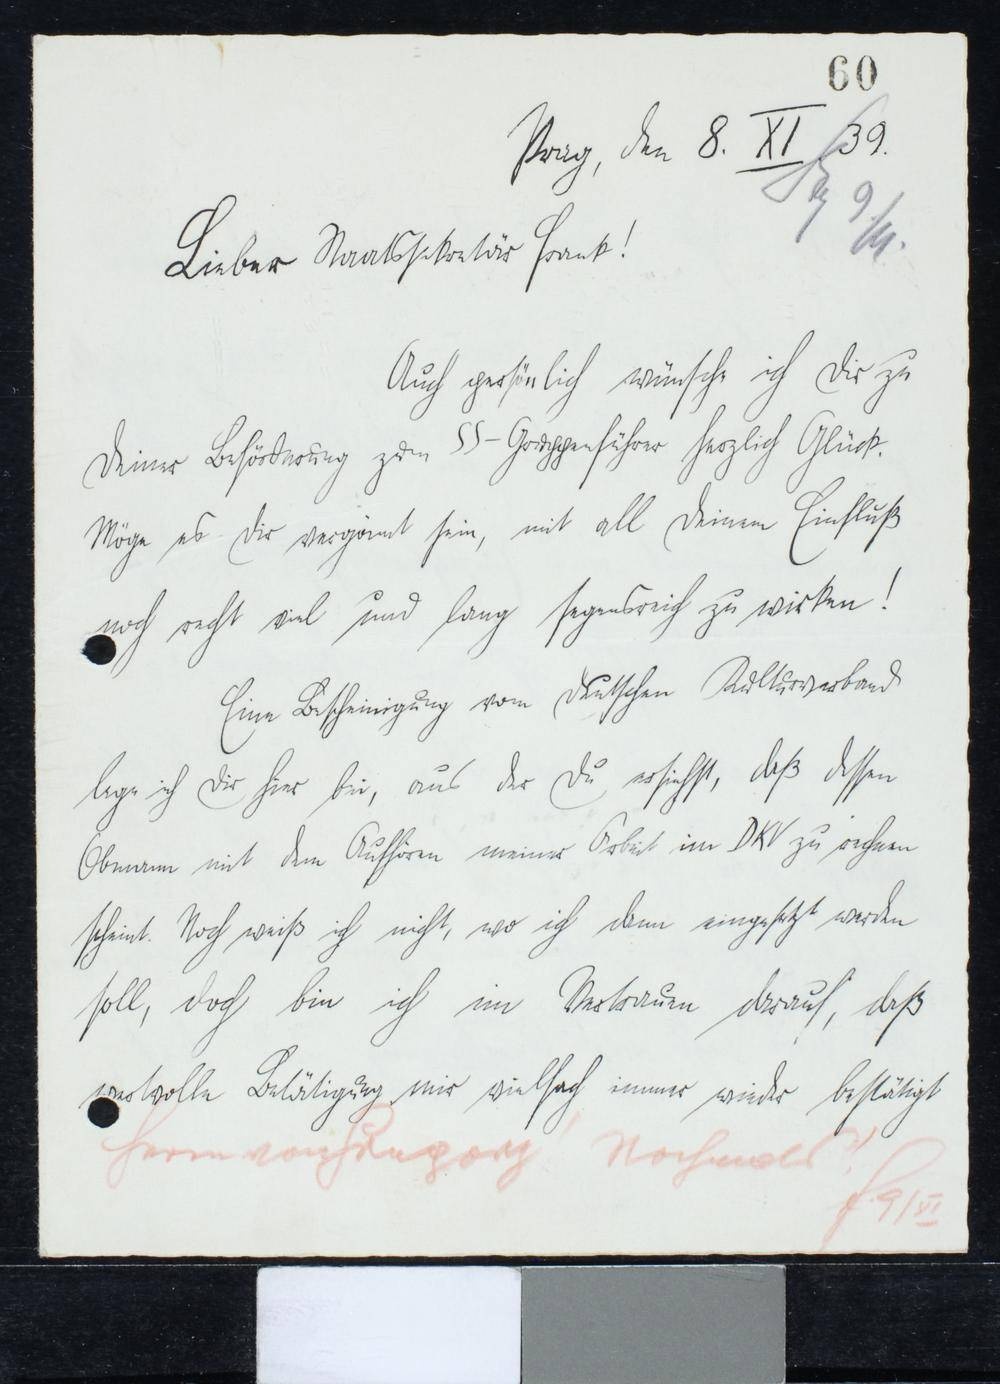 60
Prag, den 8. XI 39.
9/XI.
Lieber Staatssekretär Frank!
Auch persönlich wünsche ich Dir zu
Deiner Beförderung zum SS-Gruppenführer herzlich Glück.
Möge es Dir vergönnt sein, mit all Deinem Einfluß
noch recht viel und lang segensreich zu wirken!
Eine Bescheinigung vom Deutschen Kulturverband
lege ich Dir hier bei, aus der Du ersiehst, daß dessen
Obmann mit dem Aufhören meiner Arbeit im DKV zu rechnen
scheint. Noch weiß ich nicht, wo ich dann eingesetzt werden
soll, doch bin ich im Vertrauen darauf, daß
wertvolle Betätigung mir vielfach immer wieder bestätigt
Herrn von Gregory Nochmals!
F. 9/XI